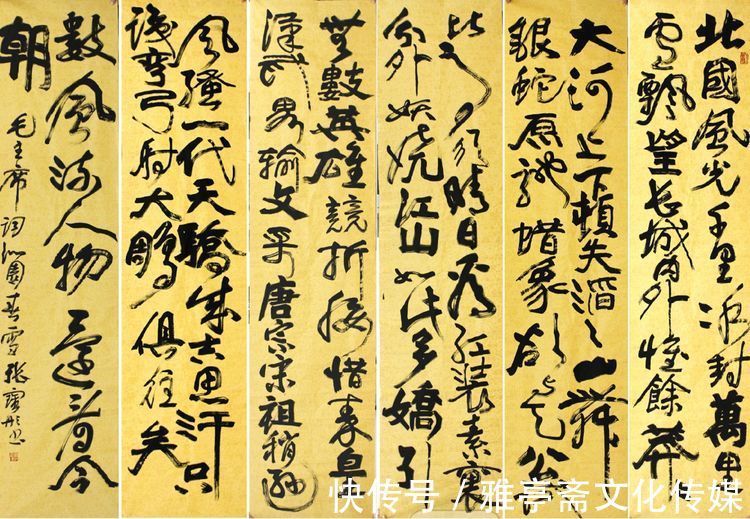 北國風光千里冰封萬里
雪飄望長城內外惟餘莽
大河上下頓失滔〻山舞
銀蛇原馳蜡象欲與天公
比高須晴日看紅裝素裹
分外妖嬈江山如此多嬌引
無數英雄競折腰惜秦皇
漢武略輸文采唐宗宋祖稍遜
風騷一代天驕成吉思汗只
識彎弓射大雕俱往矣
數風流人物還看今
朝
毛主席詞沁園春雪張
快传号 / 雅亭斋文化传媒